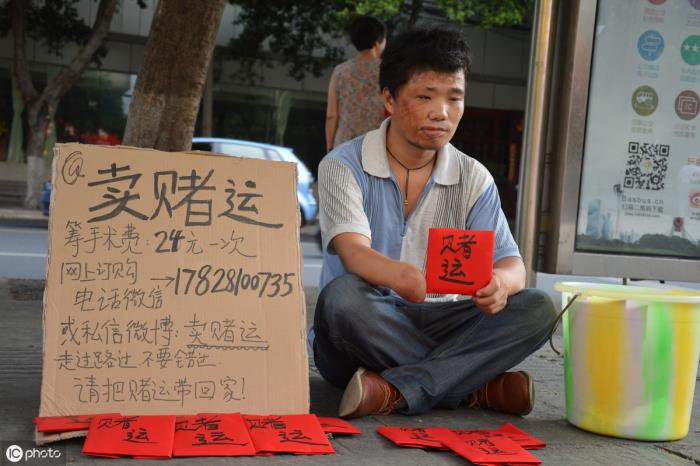 @卖赌运
筹手术费:24元一次
网上订购
→17828100735
电话微信
或私信微博:卖赌运
走过路过,不要错过
请把赌运带回家!
赌运
赌运
赌运
赌运
赌运
赌运
ic photo